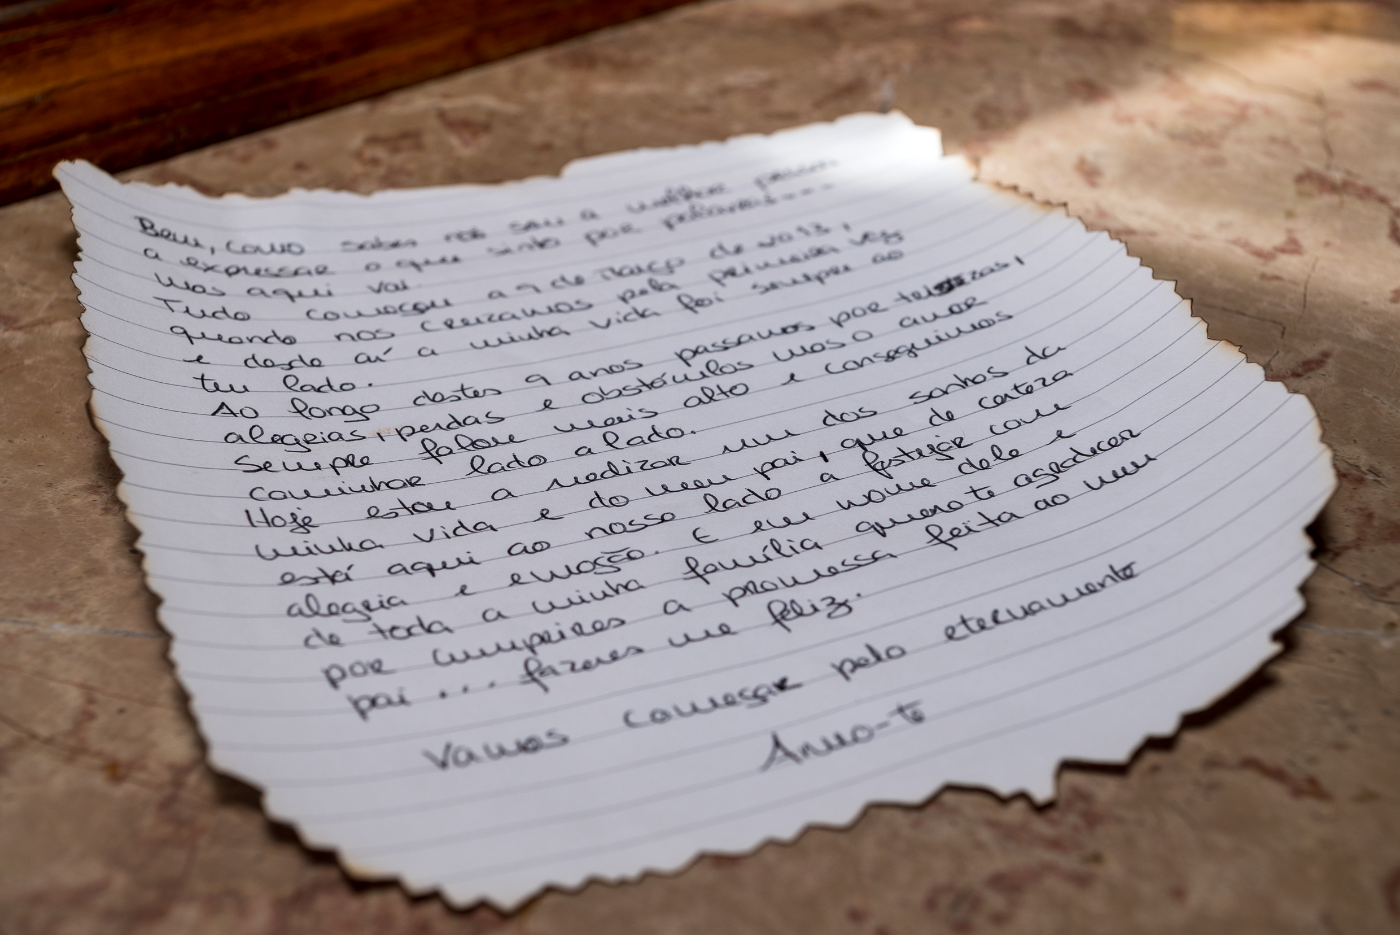 Bem, como sabes não sou a melhor pessoa
a expressar o que sinto por palavras---
mas aqui vai.
Tudo começou a 9 de Março de 2013,
quando nos cruzamos pela primeira vez
e desde aí a minha vida foi sempre ao
teu lado.
Ao longo destes 9 anos passamos por tristezas,
alegrias, perdas e obstáculos mas o amor
sempre falou mais alto e conseguimos
caminhar lado a lado.
Hoje estou a realizar um dos sonhos da
minha vida e do meu pai, que de certeza
está aqui ao nosso lado a festejar com
alegria e emoção. E em nome dele e
de toda a minha família quero-te agradecer
por cumprires a promessa feita ao meu
pai... fazeres me feliz.
Vamos começar pelo eternamente
Amo-te